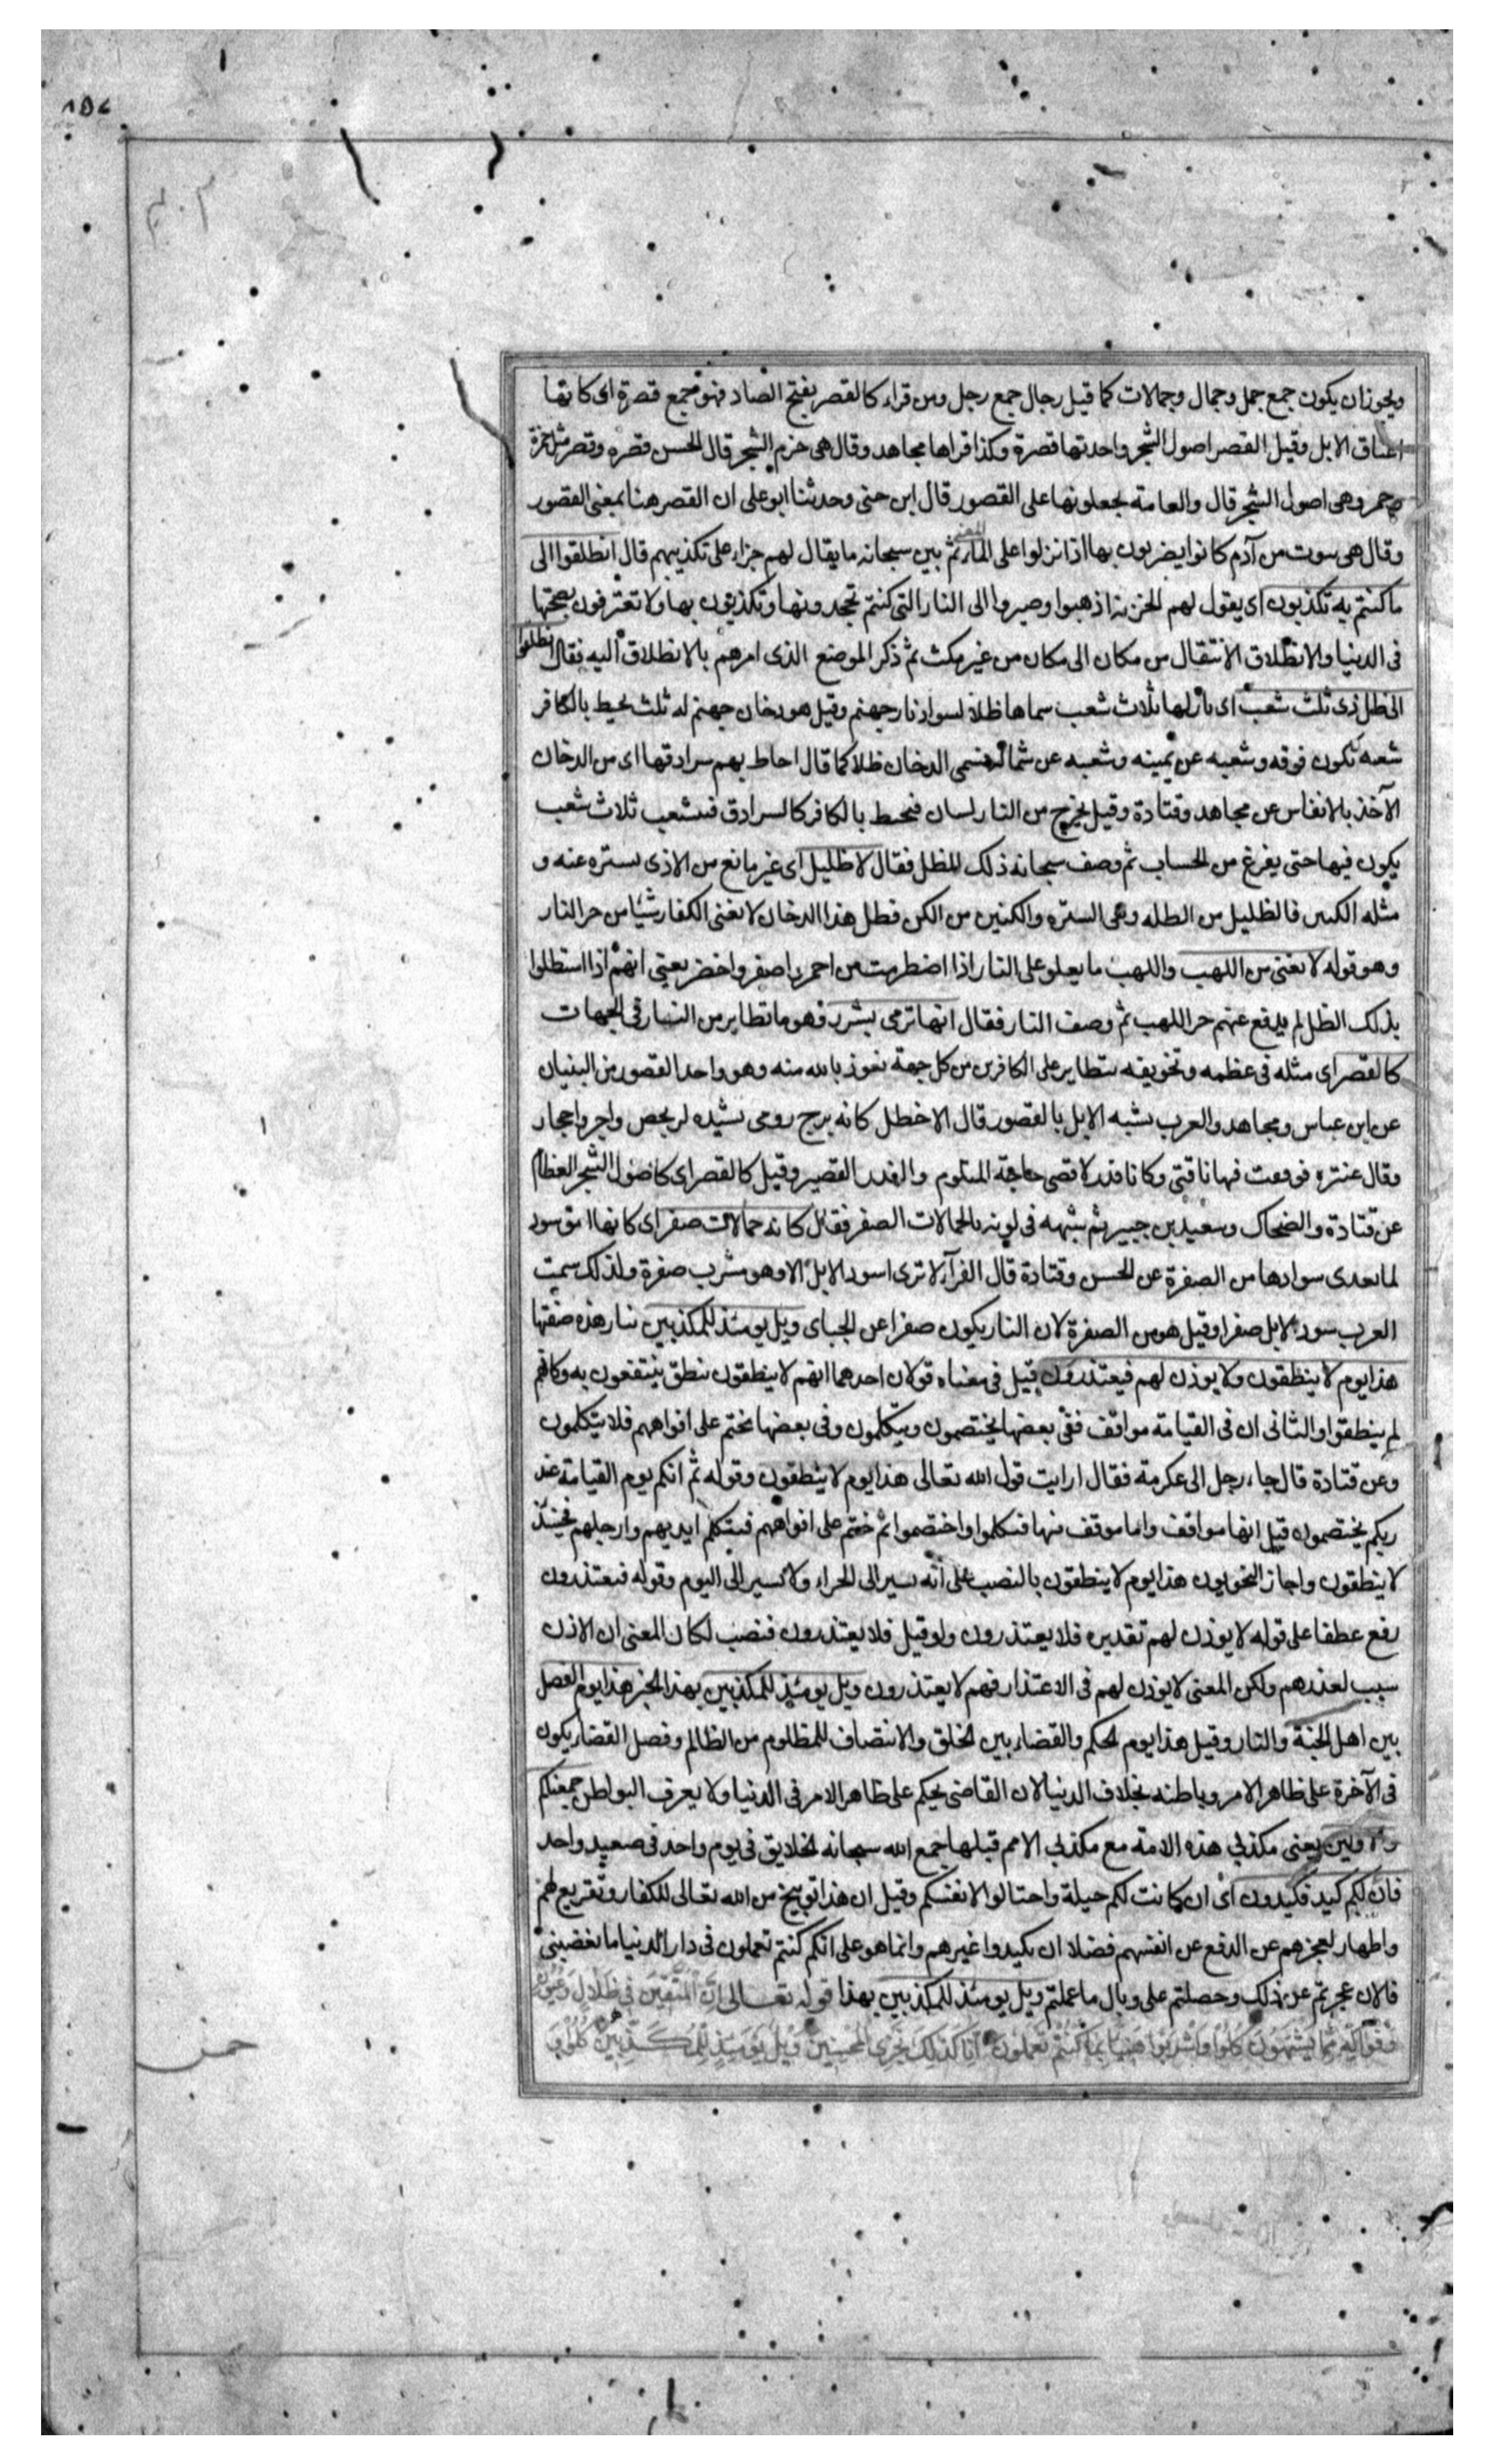 ويجوز ان يكون جمع جمل وجمال وجمالات كما قيل رجال جمع رجل ومن قراء كالقصر بفتح الصاد فهو جمع قصرة اى كانها
اعناق الابل وقيل القصر اصول الشجر واحدتها قصرة وكذا قراها مجاهد وقال هى حزم الشجر قال الحسن قصره وقصر مثل جمرة
وجمر وهى اصول الشجر قال والعامة يجعلونها على القصور قال ابن جنى وحدثنا ابو على ان القصر هنا بمعنى القصور
وقال هى بيوت من آدم كانوا يضربون بها اذا نزلوا على الماء المعنى ثم بين سبحانه ما يقال لهم جزاء على تكذيبهم قال انطلقوا الى
ما كنتم به تكذبون اى يقول لهم الخزنة اذهبوا وصيروا الى النار التى كنتم تجحدونها وتكذبون بها ولا تعترفون بصحتها
فى الدنيا والانطلاق الانتقال من مكان الى مكان من غير مكث ثم ذكر الموضع الذى امرهم بالانطلاق اليه فقال انطلقوا
الى ظل ذى ثلث شعب اى نار لها ثلاث شعب سماها ظلا لسواد نار جهنم وقيل هو دخان جهنم له ثلث يحيط بالكافر
شعبه تكون فوقه وشعبه عن يمينه وشعبه عن شماله فسمى الدخان ظلا كما قال احاط بهم سرادقها اى من الدخان
الآخذ بالانفاس عن مجاهد وقتادة وقيل يخرج من النار لسان فيحيط بالكافر كالسرادق فتشعب ثلاث شعب
يكون فيها حتى يفرغ من الحساب ثم وصف سبحانه ذلك الظل فقال لا ظليل اى غير مانع من الاذى بستره عنه و
مثله الكنين فالظليل من الظله وهى الستره والكنين من الكن فظل هذا الدخان لا يغنى الكفار شيئا من حر النار
وهو قوله لا يغنى من اللهب واللهب ما يعلو على النار اذا اضطرمت من احمر واصفر واخضر يعنى انهم اذا استظلوا
بذلك الظل لم يدفع عنهم حر اللهب ثم وصف النار فقال انها ترمى بشرر فهو ما تطاير من النار فى الجهات
كالقصر اى مثله فى عظمه وتخويفه يتطاير على الكافرين من كل جهة نعوذ بالله منه وهو واحد القصور من البنيان
عن ابن عباس ومجاهد والعرب يشبه الابل بالقصور قال الاخطل كانه برج رومى يشيده لز بجص واجر واحجار
وقال عنتره فوقعت فيها ناقتى وكانا فدن لاقضى حاجة المتلوم والفدن القصر وقيل كالقصر اى كاصول الشجر العظام
عن قتادة والضحاك وسعيد بن جبير ثم شبهه فى لونه بالجمالات الصفر فقال كانه جمالات صفر اى كانها انيق سود
لما يعدى سوادها من الصفرة عن الحسن وقتادة قال الفراء لا ترى اسود الابل الا وهو مشرب صفرة ولذلك سمت
العرب سود الابل صفرا وقيل هو من الصفرة لان النار يكون صفرا عن الجباى ويل يومئذ للمكذبين بنار هذه صفتها
هذا يوم لا ينطقون ولا يوذن لهم فيعتذرون قيل فى معناه قولان احدهما انهم لا ينطقون بنطق ينتفعون به فكانهم
لم ينطقوا والثانى ان فى القيامة مواقف ففى بعضها يختصمون ويتكلمون وفى بعضها يختم على افواههم فلا يتكلمون
وعن قتادة قال جاء رجل الى عكرمة فقال ارايت قول الله تعالى هذا يوم لا ينطقون وقوله ثم انكم يوم القيامة عند
ربكم يختصمون قيل انها مواقف واما موقف منها فتكلموا واختصموا ثم ختم على افواههم فيتكلم ايديهم وارجلهم فحينئذ
لا ينطقون واجاز النحويون هذا يوم لا ينطقون بالنصب على انه يسير الى الجزاء ولا يسير الى اليوم وقوله فيعتذرون
رفع عطفا على قوله لا يوذن لهم تقديره فلا يعتذرون ولو قيل فلا يعتذرون فنصب لكان المعنى ان الاذن
سبب لعذرهم ولكن المعنى لا يوذن لهم فى الاعتذار فهم لا يعتذرون ويل يومئذ للمكذبين بهذا الخبر هذا يوم الفصل
بين اهل الجنة والنار وقيل هذا يوم الحكم والقضاء بين الخلق والانتصاف للمظلوم من الظالم وفصل القضاء يكون
فى الآخرة على ظاهر الامر وباطنه بخلاف الدنيا لان القاضى يحكم على ظاهر الامر فى الدنيا ولا يعرف البواطن جمعنكم
والاولين يعنى مكذبى هذه الامة مع مكذبى الامم قبلها جمع الله سبحانه الخلايق فى يوم واحد فى صعيد واحد
فان لكم كيد فكيدون اى ان كانت لكم حيلة واحتالوا لانفسكم وقيل ان هذا توبيخ من الله تعالى للكفار وتقريع لهم
واظهار لعجزهم عن الدفع عن انفسهم فضلا ان يكيدوا غيرهم وانما هو على انكم كنتم تعملون فى دار الدنيا ما يغضبنى
فالان عجزتم عن ذلك وحصلتم على وبال ما عملتم ويل يومئذ للمكذبين بهذا قوله تعالى اِنَّ الْمُتَّقِينَ فى ظِلَالٍ وَعُيُونٍ
وَفَوَاكِهَ مِمَّا يَشْتَهُونَ كُلُوا وَاشْرَبُوا هَنِيئًا بِمَا كُنْتُمْ تَعْمَلُونَ اِنَّا كَذَلِكَ نَجْزِى الْمُحْسِنِينَ وَيْلٌ يَوْمَئِذٍ لِلْمُكَذِّبِينَ كُلُوا وَ